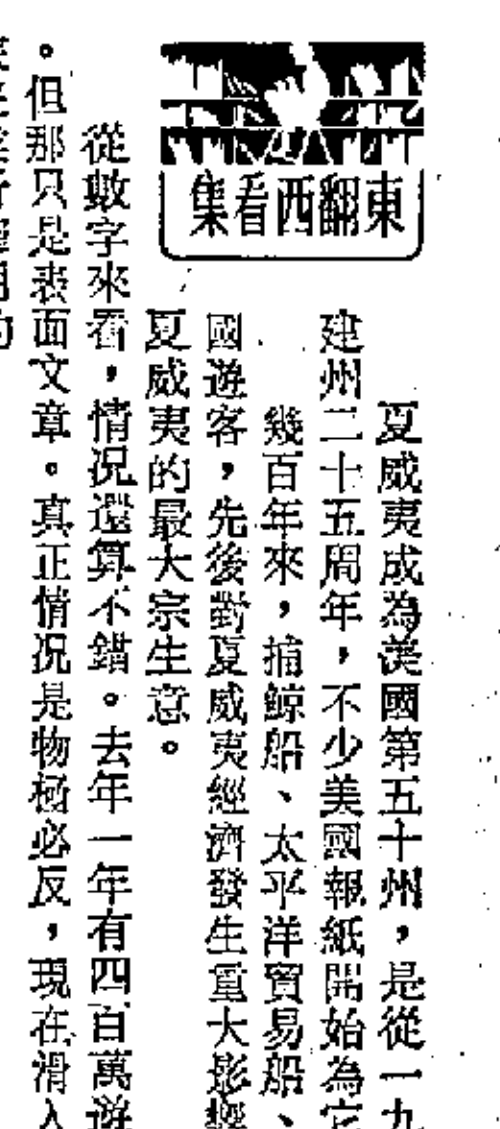 東翻西看集
夏威夷成為美國第五十州，是從一九
建州二十五周年，不少美國報紙開始為它
幾百年來，捕鯨船、太平洋貿易船、
國遊客，先後對夏威夷經濟發生重大影響
夏威夷的最大宗生意。
從數字來看，情況還算不錯。去年一年有四百萬遊
。但那只是表面文章。真正情況是物極必反，現在滑入